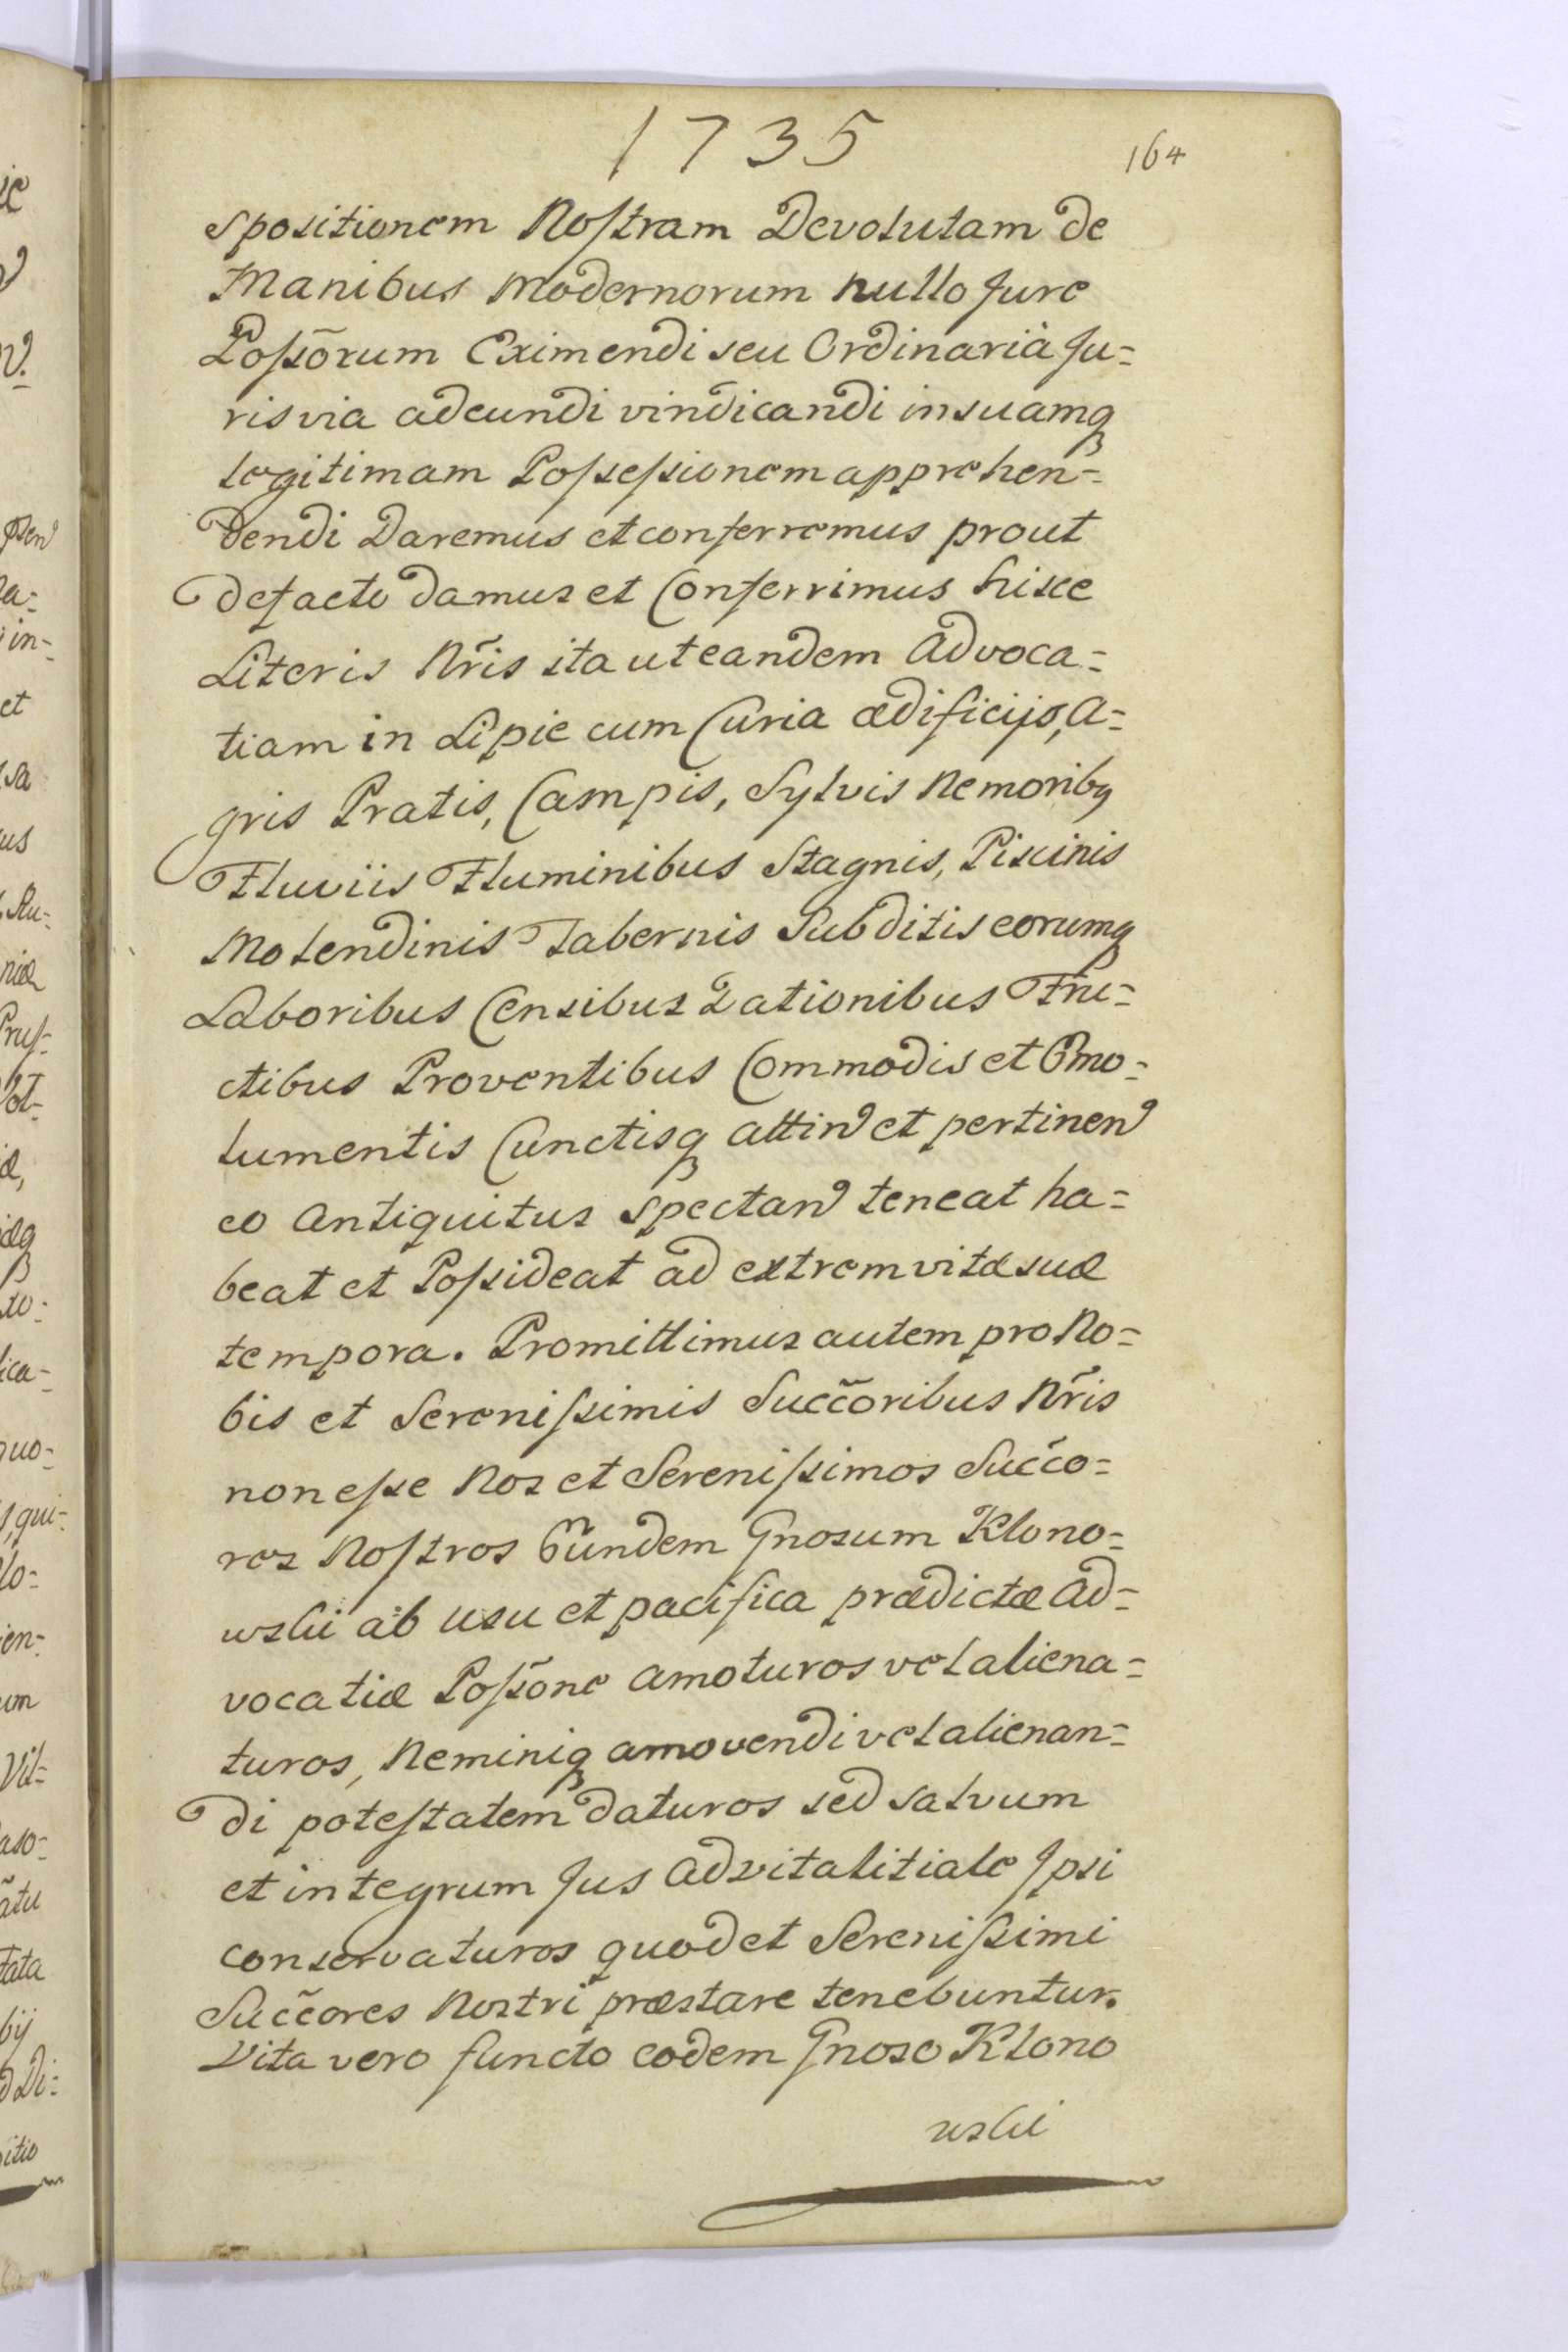 1735
164
spositionem Nostram Devolutam de
Manibus modernorum nullo Jure
Possõrum Eximendi seu Ordinariâ Ju=
ris via adeundi vindicandi in suamq
legitimam Possessionem apprehen=
dendi Daremus et conferremus prout
de facto damus et Conferrimus hisce
Literis Nr̃is ita ut eandem Advoca=
tiam in Lipie cum Curia ædificijs, A=
gris Pratis, Campis, Sylvis Nemoribq
Fluviis Fluminibus Stagnis, Piscinis
Molendinis Tabernis Subditis eorumq
Laboribus Censibus Dationibus Fru=
ctibus Proventibus Commodis et Emo=
lumentis Cunctisq attin et pertinen
eo Antiquitus spectan teneat ha=
beat et Possideat ad extrem vitæ suæ
tempora. Promittimus autem pro No=
bis et Serenissimis Succ̃oribus Nr̃is
non esse Nos et Serenissimos Succ̃o=
res Nostros Eundem Gnosum Klono=
wski ab usu et pacifica prædictæ Ad=
vocatiæ Possõne amoturos vel aliena=
turos, Neminiq amovendi vel alienan=
di potestatem daturos sed salvum
et integrum Jus Advitalitiale Ipsi
conservaturos quod et Serenissimi
Succ̃ores Nostri præstare tenebuntur.
Vita vero functo eodem Gnoso Klono
wski